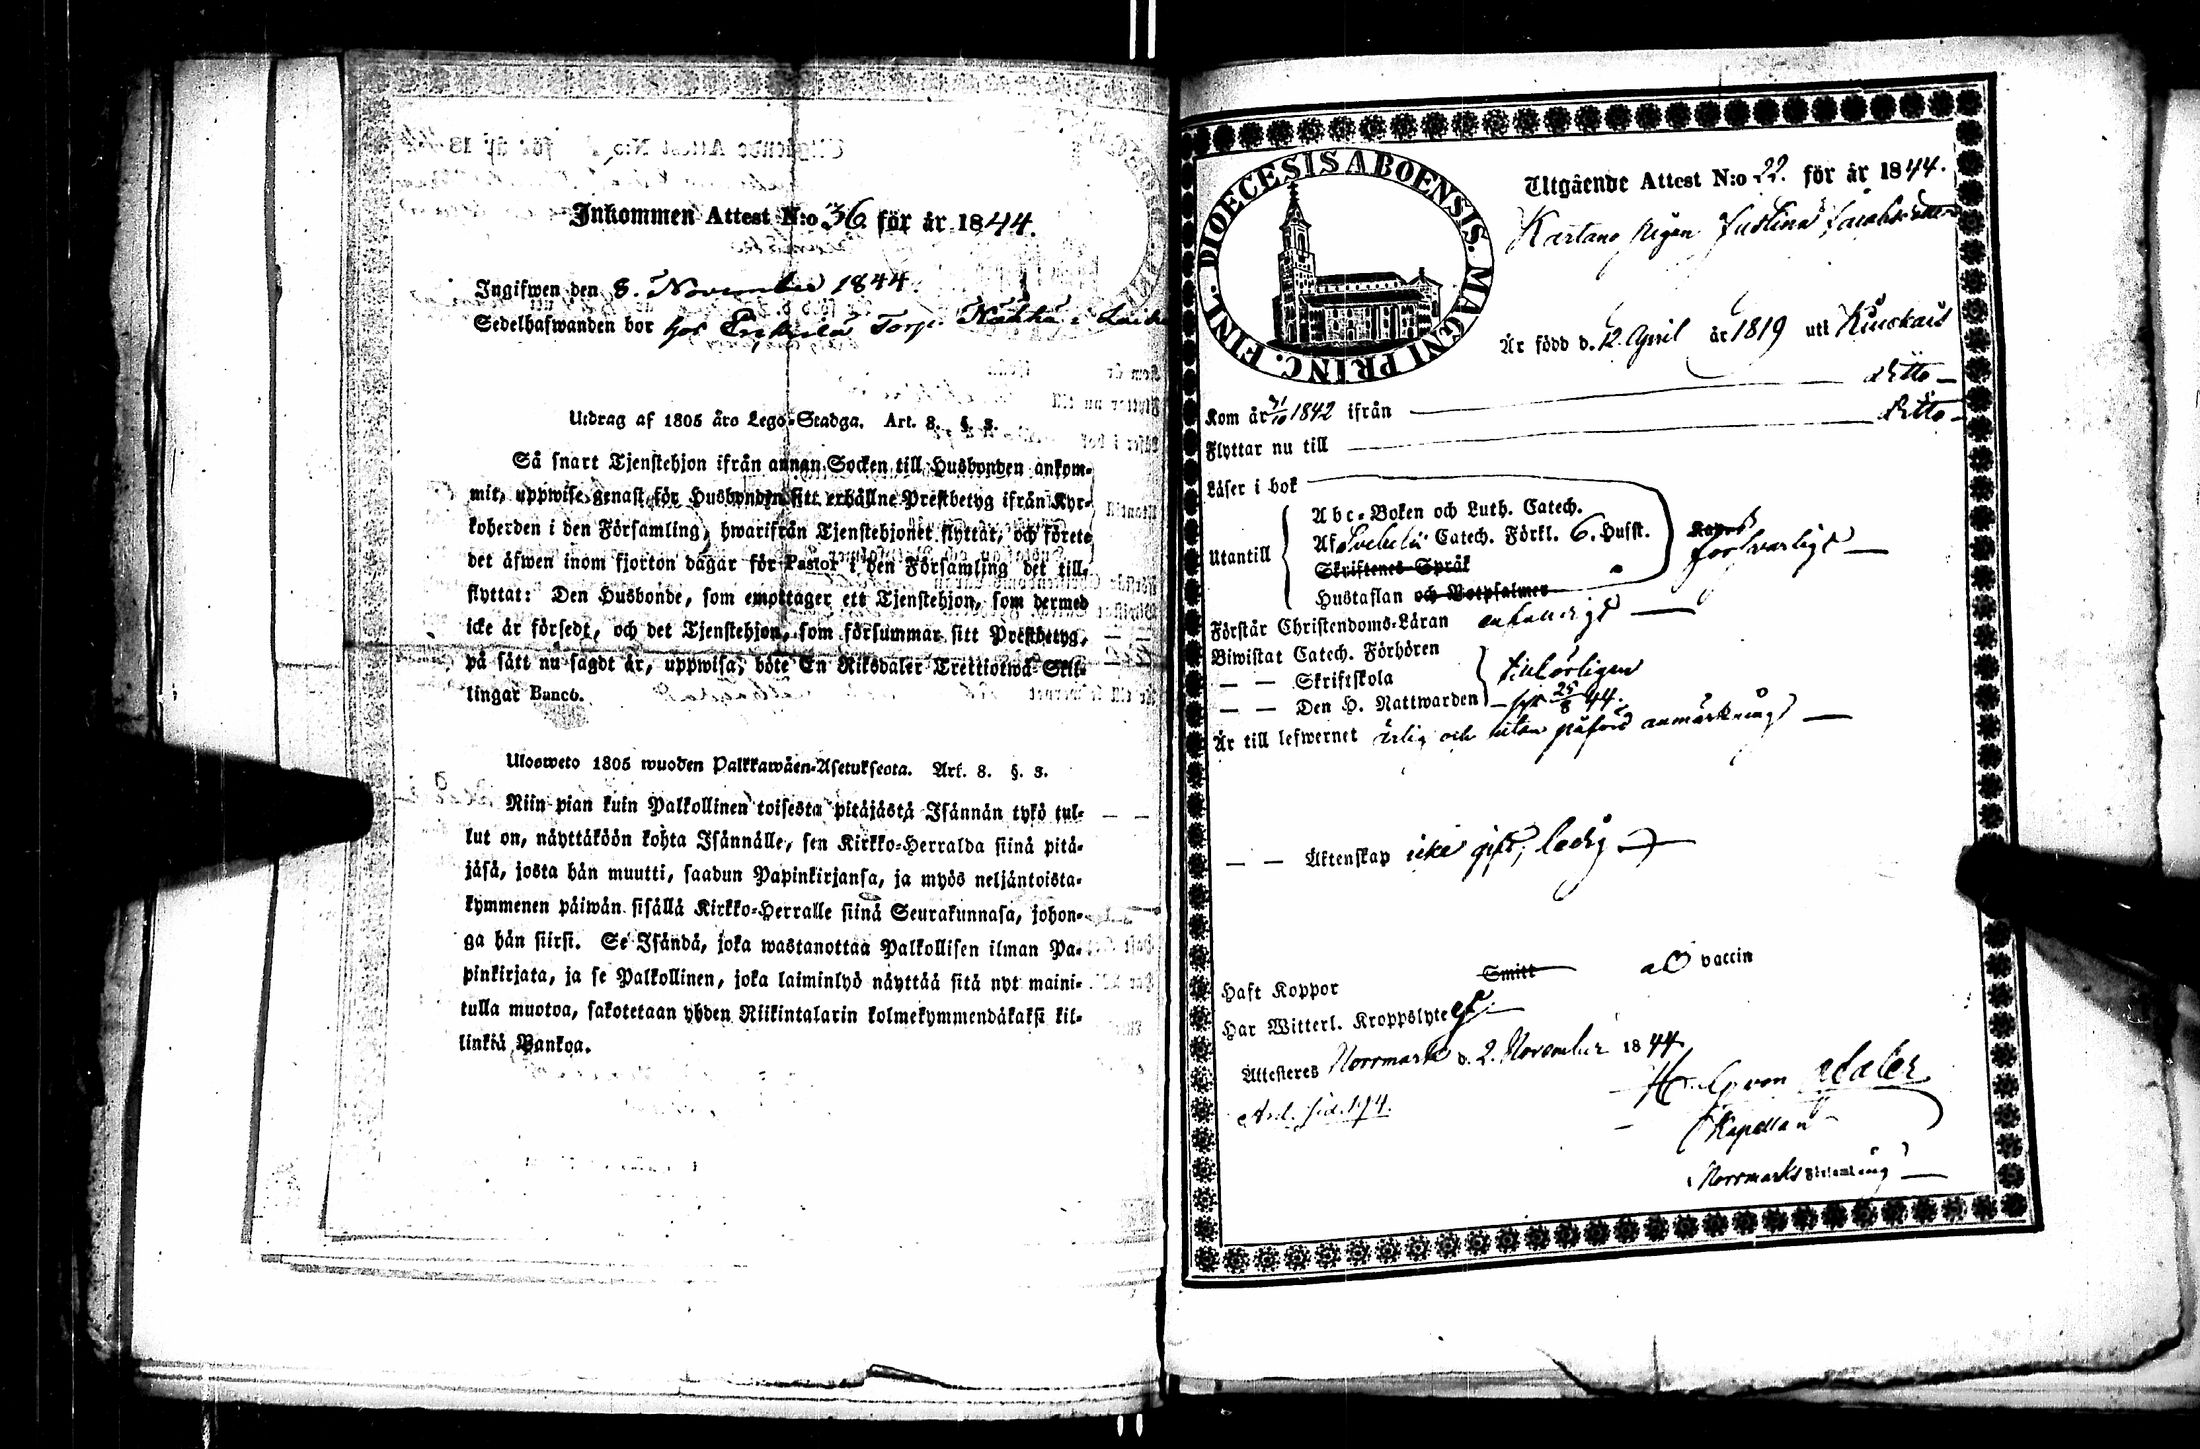 Inkommen Attest N:o 36 för år 1844.
Ingifwen den 8. November 1844.
Sedelhafwanden bor hos Torp.
Utdrag af 1805 års Lego-Stadga. Art. 8. §. 3.
Så snart Tjenstehjon ifrån annan Socken till Husbonden ankom-
mit, uppwise genast för Husbonden sitt erhållne Prestbetyg ifrån Kyr-
koherden i den Församling, hwarifrån Tjenstehjonet flyttat, och förete
det äfwen inom fjorton dagar för Pastor i den Församling det till-
flyttat: Den Husbonde, som emottager ett Tjenstehjon, som dermed
icke är försedt, och det Tjenstehjon, som försummar sitt Prestbetyg,
på sätt nu sagdt är, uppwisa, böte En Riksdaler Trettiotwå Skil-
lingar Banco.
Ulosweto 1805 wuoden Palkkawäen-Asetuksesta. Art. 8. §. 3.
Niin pian kuin Palkollinen toisesta pitäjästä Isännän tykö tul-
lut on, näyttäköön kohta Isännälle, sen Kirkko-Herralda siinä pitä-
jäsä, josta hän muutti, saadun Papinkirjansa, ja myös neljäntoista-
kymmenen päiwän sisällä Kirkko-Herralle siinä Seurakunnasa, johon-
ga hän siirsi. Se Isändä, joka wastanottaa Palkollisen ilman Pa-
pinkirjata, ja se Palkollinen, joka laiminlyö näyttää sitä nyt maini-
tulla muotoa, sakotetaan yhden Riikintalarin kolmekymmendäkaksi kil-
linkiä Bankoa.
DIOECESIS ABOENSIS. MAGNI PRINC. FINL.
Utgående Attest N:o 22. för år 1844.
Kartano Pigan Justina Jacobsdotter
Är född d. 12 April år 1819 uti
ditto
Kom år 21/10 1842 ifrån
ditto
Flyttar nu till
Läser i bok
Utantill
Abc-Boken och Luth. Catech.
Af Svebelii Catech. Förkl. 6. Husst.
Skriftenes Språk
Hustaflan och Botpsalmer
försvarligt
Förstår Christendoms-Läran
Biwistat Catech. Förhören
— — Skriftskola
— — Den H. Nattwarden
tillbörligen
25/8 44.
Är till lefwernet ärlig och utan påförd anmärkning
— — Äktenskap icke gift, ledig
Haft Koppor Smitt vaccin
Har Witterl. Kroppslyte ej.
Attesteres Norrmark d. 2. November 1844
von
Kapellan
Norrmarks Församling